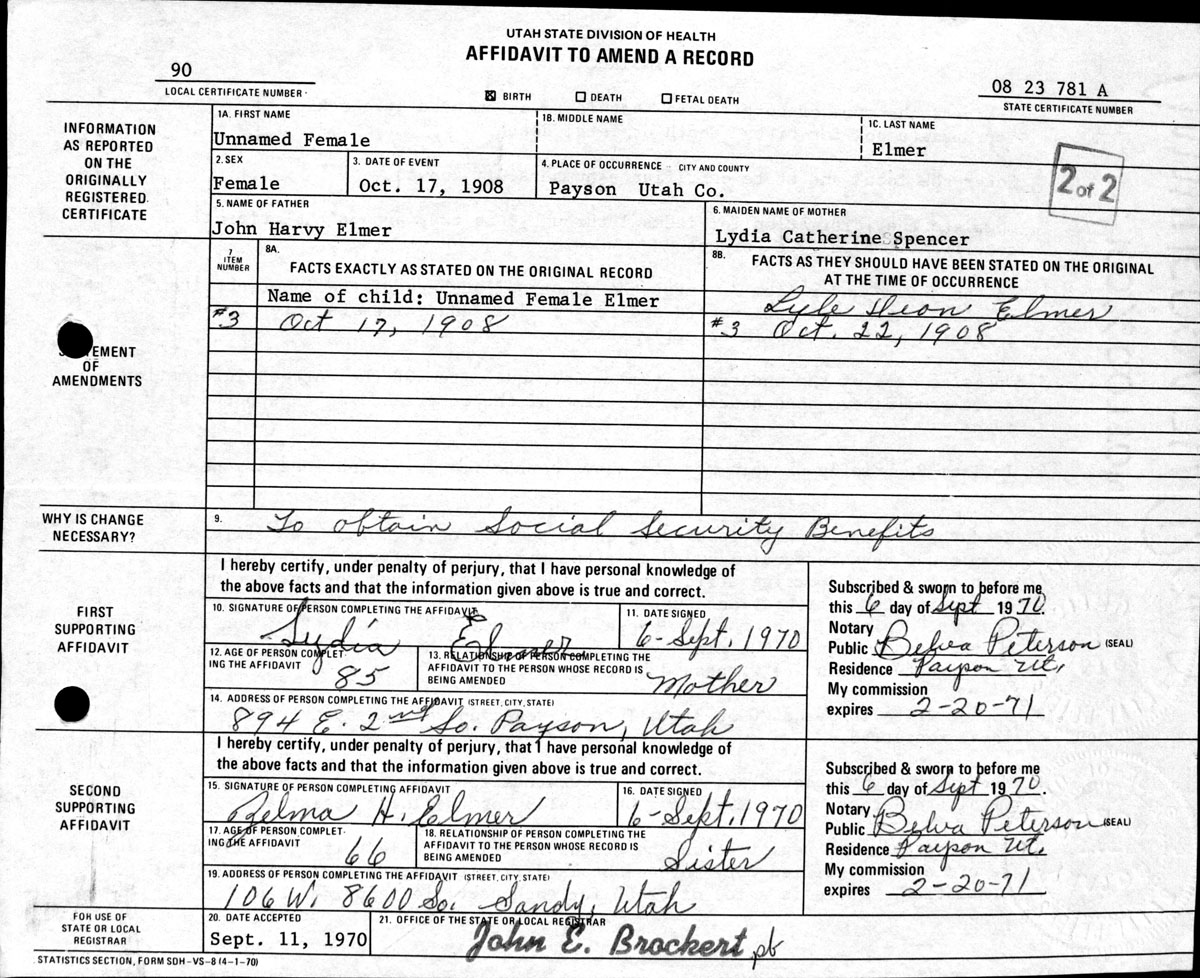 UTAH STATE DIVISION OF HEALTH
AFFIDAVIT TO AMEND A RECORD
90
LOCAL CERTIFICATE NUMBER
☒ BIRTH ☐ DEATH ☐ FETAL DEATH
08 23 781 A
STATE CERTIFICATE NUMBER
INFORMATION AS REPORTED ON THE ORIGINALLY REGISTERED CERTIFICATE
1A. FIRST NAME 1B. MIDDLE NAME 1C. LAST NAME
Unnamed Female Elmer
2. SEX 3. DATE OF EVENT 4. PLACE OF OCCURRENCE - CITY AND COUNTY
Female Oct. 17, 1908 Payson Utah Co.
2 of 2
5. NAME OF FATHER 6. MAIDEN NAME OF MOTHER
John Harvy Elmer Lydia Catherine Spencer
STATEMENT OF AMENDMENTS
7 ITEM NUMBER
8A. FACTS EXACTLY AS STATED ON THE ORIGINAL RECORD
8B. FACTS AS THEY SHOULD HAVE BEEN STATED ON THE ORIGINAL
AT THE TIME OF OCCURRENCE
Name of child: Unnamed Female Elmer Lyle Elmer
#3 Oct 17, 1908 #3 Oct. 22, 1908
WHY IS CHANGE NECESSARY?
9. To obtain Social Security Benefits
FIRST SUPPORTING AFFIDAVIT
I hereby certify, under penalty of perjury, that I have personal knowledge of
the above facts and that the information given above is true and correct.
10. SIGNATURE OF PERSON COMPLETING THE AFFIDAVIT 11. DATE SIGNED
Lydia Elmer 6-Sept. 1970
12. AGE OF PERSON COMPLETING THE AFFIDAVIT
85
13. RELATIONSHIP OF PERSON COMPLETING THE
AFFIDAVIT TO THE PERSON WHOSE RECORD IS
BEING AMENDED Mother
14. ADDRESS OF PERSON COMPLETING THE AFFIDAVIT (STREET, CITY, STATE)
894 E. 2nd So. Payson, Utah
Subscribed & sworn to before me
this 6 day of Sept 1970.
Notary
Public Belva Peterson (SEAL)
Residence Payson Ut.
My commission
expires 2-20-71
SECOND SUPPORTING AFFIDAVIT
I hereby certify, under penalty of perjury, that I have personal knowledge of
the above facts and that the information given above is true and correct.
15. SIGNATURE OF PERSON COMPLETING AFFIDAVIT 16. DATE SIGNED
H. Elmer 6-Sept. 1970
17. AGE OF PERSON COMPLETING THE AFFIDAVIT
66
18. RELATIONSHIP OF PERSON COMPLETING THE
AFFIDAVIT TO THE PERSON WHOSE RECORD IS
BEING AMENDED Sister
19. ADDRESS OF PERSON COMPLETING THE AFFIDAVIT (STREET, CITY, STATE)
106 W. 8600 So. Sandy, Utah
Subscribed & sworn to before me
this 6 day of Sept 1970.
Notary
Public Belva Peterson (SEAL)
Residence Payson Ut.
My commission
expires 2-20-71
FOR USE OF STATE OR LOCAL REGISTRAR
20. DATE ACCEPTED 21. OFFICE OF THE STATE OR LOCAL REGISTRAR
Sept. 11, 1970 John E. Brockert pb
STATISTICS SECTION, FORM SDH-VS-8 (4-1-70)